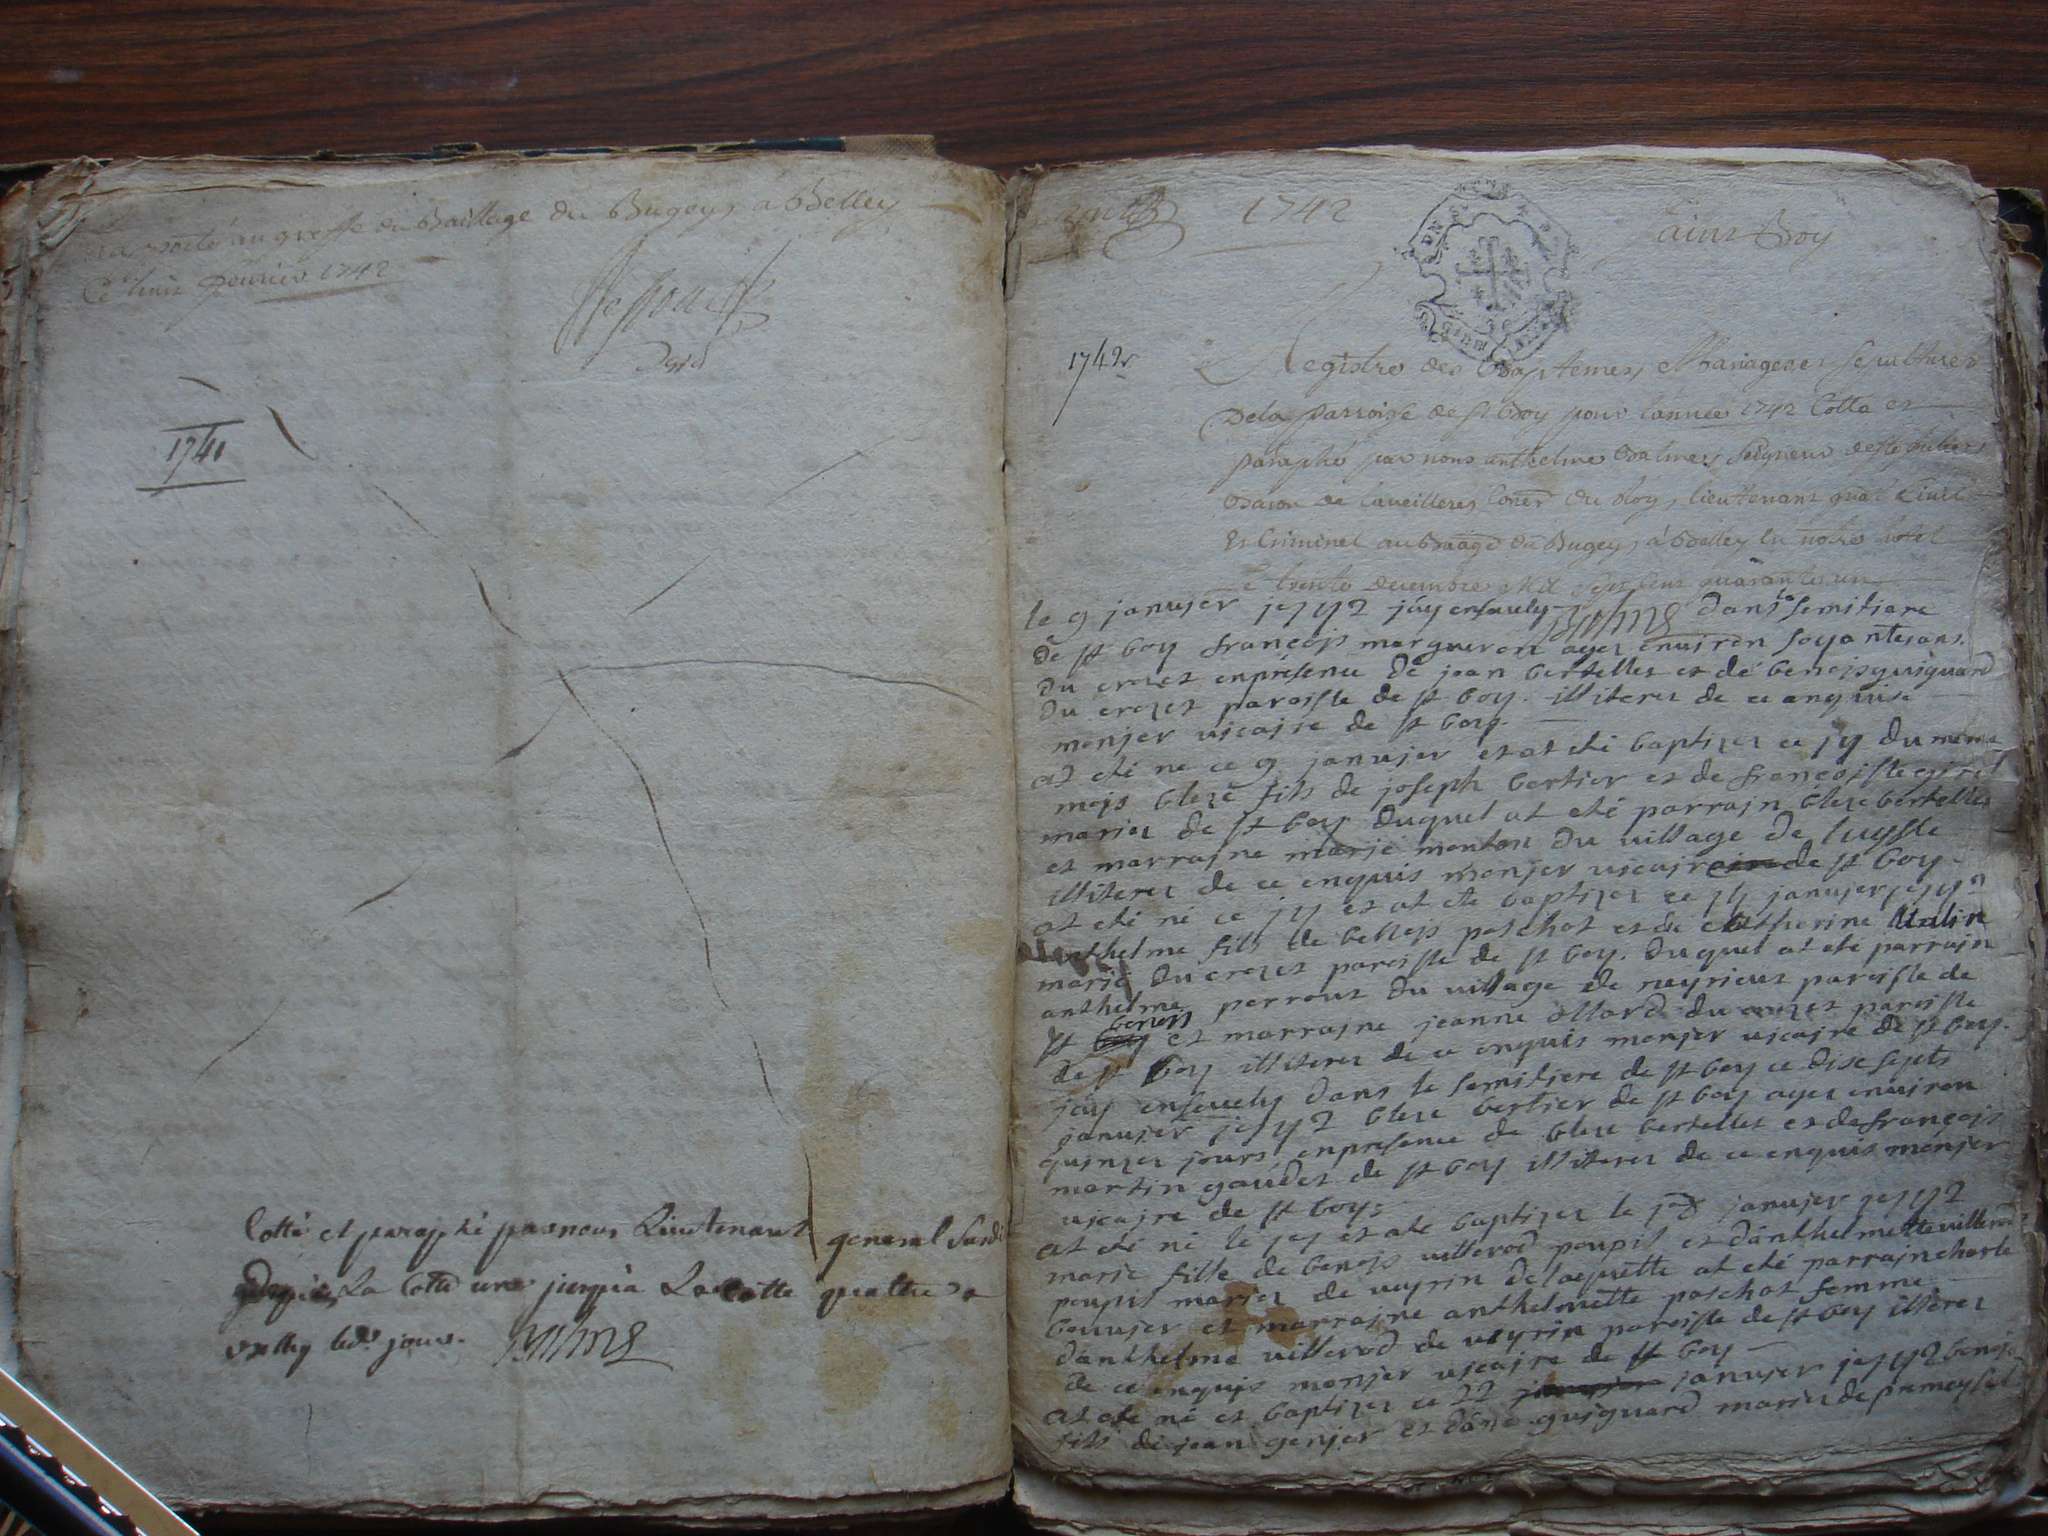 au greffe du Bailliage du Bugey, a Belley
Ce huit fevrier 1742
1741
Cotté et paraphé par nous Lieutenant general
La Cotte une jusqu'a La Cotte quattre
jour.
1742
Saint Boy
1742
Registre des Baptemes, Mariages et sepultures
De la parroisse de St Boy pour l'année 1742 Cotté et
paraphé par nous anthelme Balme, Seigneur de Ste Julie
Baron de Du Roy, lieutenant gnal Civil
Et Criminel au Bailliage du Bugey, a Belley En notre hotel
Le trente decembre Mil Sept Cent quarante un
le 9 janujer 1742 jay ensevely dans le semitiere
de st boy françojs marqueron agez environ soyante ans.
du crozet en présence de jean bertellet et de benojs guiguard
du crozet paroisse de st boy. illiterez de ce enquis
monjer vicajre de st boy.
at eté ne ce 9 janujer et at eté baptizez ce du meme
mojs bleze fils de joseph bertier et de françojsse
mariez de st boy duquel at eté parrajn bleze bertellet
et marrajne marie monton du village de luysse
illiterez de ce enquis monjer vicajre de st boy.
at eté né ce et at ete baptizez ce janujer 1742
anthelme fils de paschot et de catherine
mariez du crozet paroisse de st boy. duquel at eté parrajn
anthelme perrout du village de neyrieu paroisse de
st benojs et marrajne jeanne ollard du crozet paroisse
de st boy illiterez de ce enquis monjer vicajre de st boy.
jay ensevely dans le semitjere de st boy ce dise septs
janujer 1742 bleze bertier de st boy agez environ
quinzes jours en presence de bleze bertellet et de françojs
martin gaudet de st boy illiterez de ce enquis monjer
vicajre de st boys
at eté né le et ate baptizez le janujer 1742
marie fille de benojs villerod poupil et d'anthelmette villerod
poupil mariez de veyrin de laquelle at eté parrajn charle
bouvjer et marrajne anthelmette paschot femme
d'anthelme villerod de veyrin paroisse de st boy illiterez
de ce enquis monjer vicajre de st boy
at ete né et baptizez ce 22 janujer 1742 benojs
fils de jean genjer et guiguard mariez de premeysel